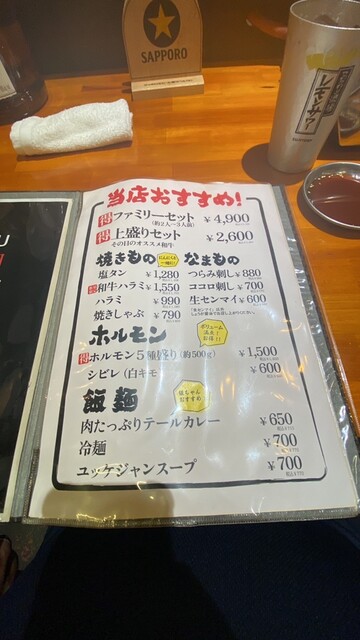 SAPPORO
レモンサワー
当店おすすめ!
得 ファミリーセット ¥4,900
(約2人〜3人前)
得 上盛りセット ¥2,600
その日のオススメ和牛
焼きもの
塩タン ¥1,280
和牛ハラミ ¥1,550
ハラミ ¥990
焼きしゃぶ ¥790
なまもの
つらみ刺し ¥880
ココロ刺し ¥700
生センマイ ¥600
ホルモン
ボリューム
満点!
お得!!
得 ホルモン5種盛り(約500g) ¥1,500
シビレ(白キモ ¥600
飯 麺
肉たっぷりテールカレー ¥650
冷麺 ¥700
ユッケジャンスープ ¥700